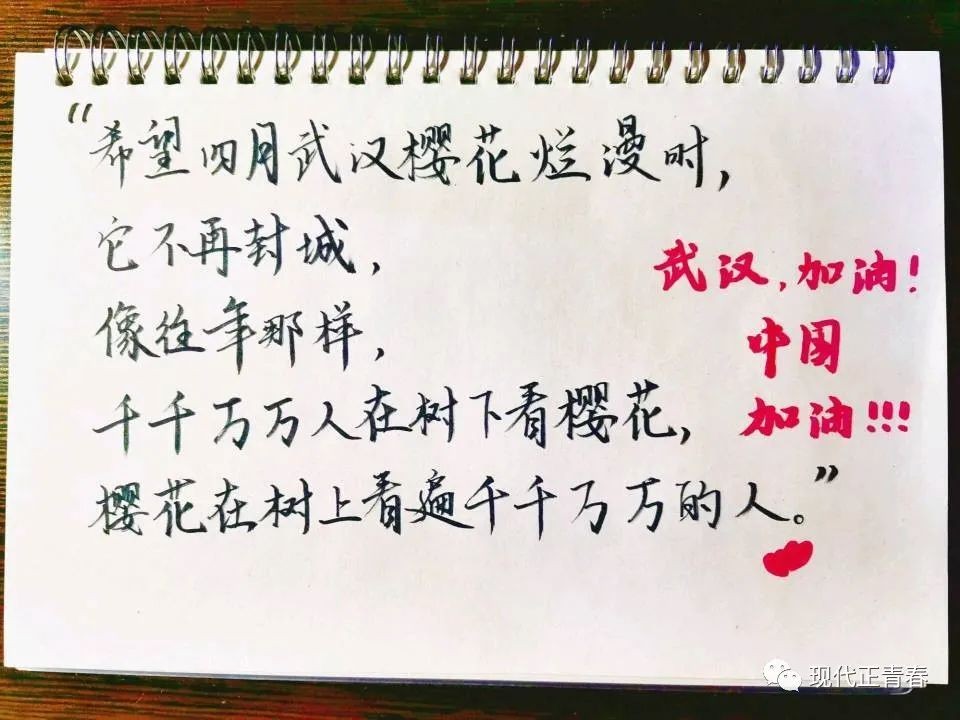 “希望四月武汉樱花烂漫时，
它不再封城，
像往年那样，
千千万万人在树下看樱花，
樱花在树上看遍千千万万的人。”
武汉，加油！
中国
加油！！！
现代正青春